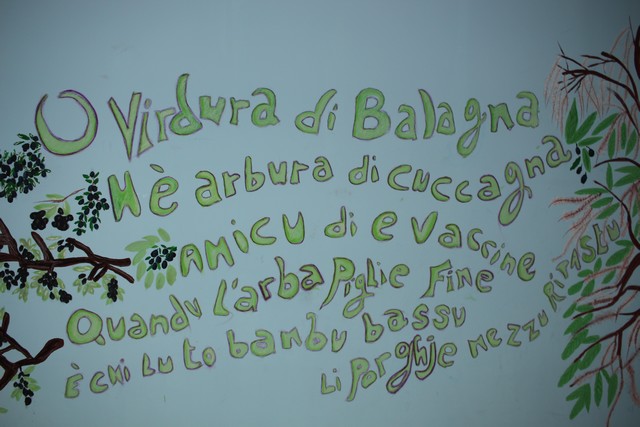 O Virdura di Balagna
Hè arbura di cuccagna
Amicu di e vaccine
Quandu l'arba Piglie Fine
È chi lu to bambu bassu
Li Porghje mezzu Ripastu